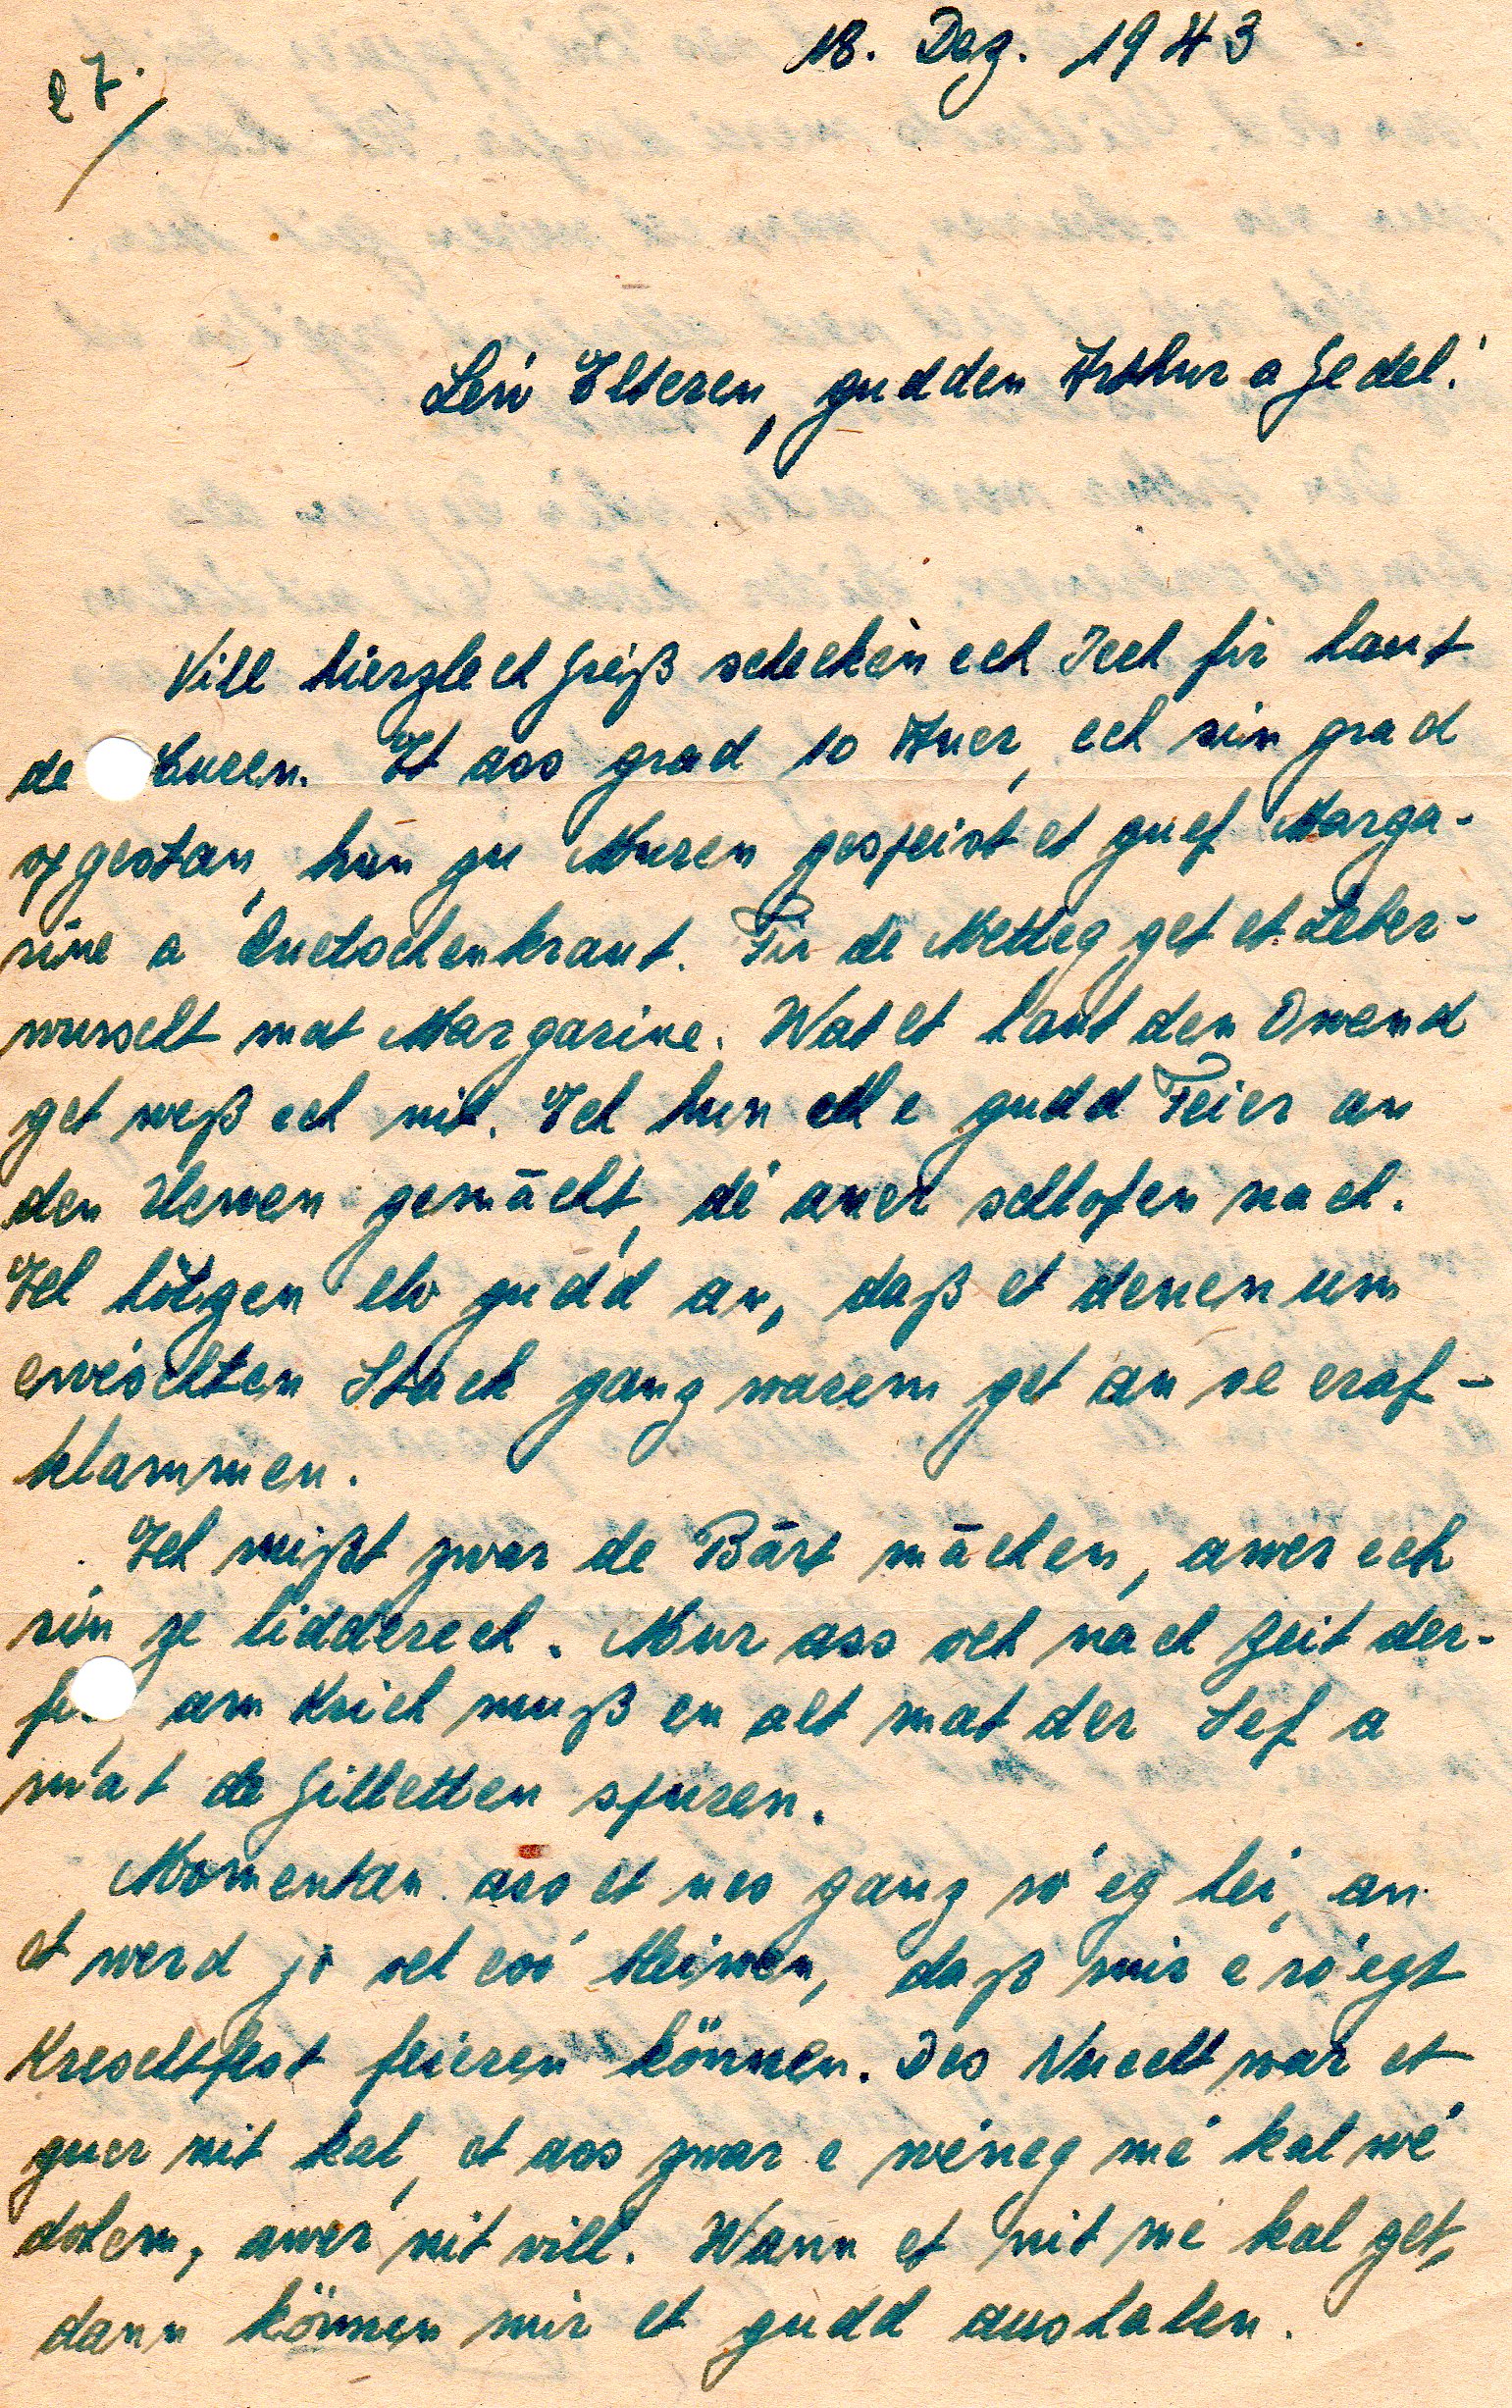 27.
18. Dez. 1943
Léiw Elteren, gudden Arthur a Jedel!
Vill hierzlech Greiß schecken ech Iech fir haut
de Mueren. Et ass grad 10 Auer, ech sin grad
opgestan, hun zu Muren gespeist et guef Marga-
rine a Quetschenkraut. Fir de Metteg get et Leber-
wuscht mat Margarine. Wat et haut den Owend
get weß ech nit. Ech hun e gudd Feier an
den Uewen gemācht, dé aner schlofen nach.
Ech hētzen elo gudd an, daß et denen um
eweschten Stack ganz warem get an se eraf-
klammen.
Ech mißt zwar de Bārt māchen, awer ech
sin ze lidderech. Mur ass och nach Zeit der-
fir, am Krich muß en alt mat der Sef a
mat de Gilletten spuren.
Momentan ass et nes ganz ró'eg hei, an
et werd jo och esó bleiwen, daß mir e ró'egt
Kreschtfest feieren können. Des Nuecht war et
guer nit kal, et ass zwar e wéneg mé kal wé
dohem, awer nit vill. Wann et nit mé kal get,
dann können mir et gudd aushalen.